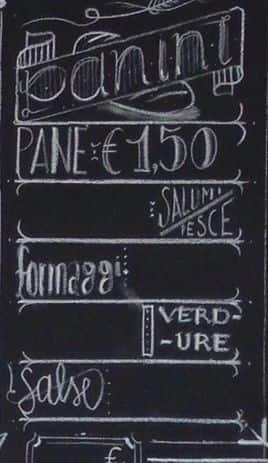 panini
PANE €1,50
SALUMI
PESCE
formaggi
VERD-
-URE
Salse
€